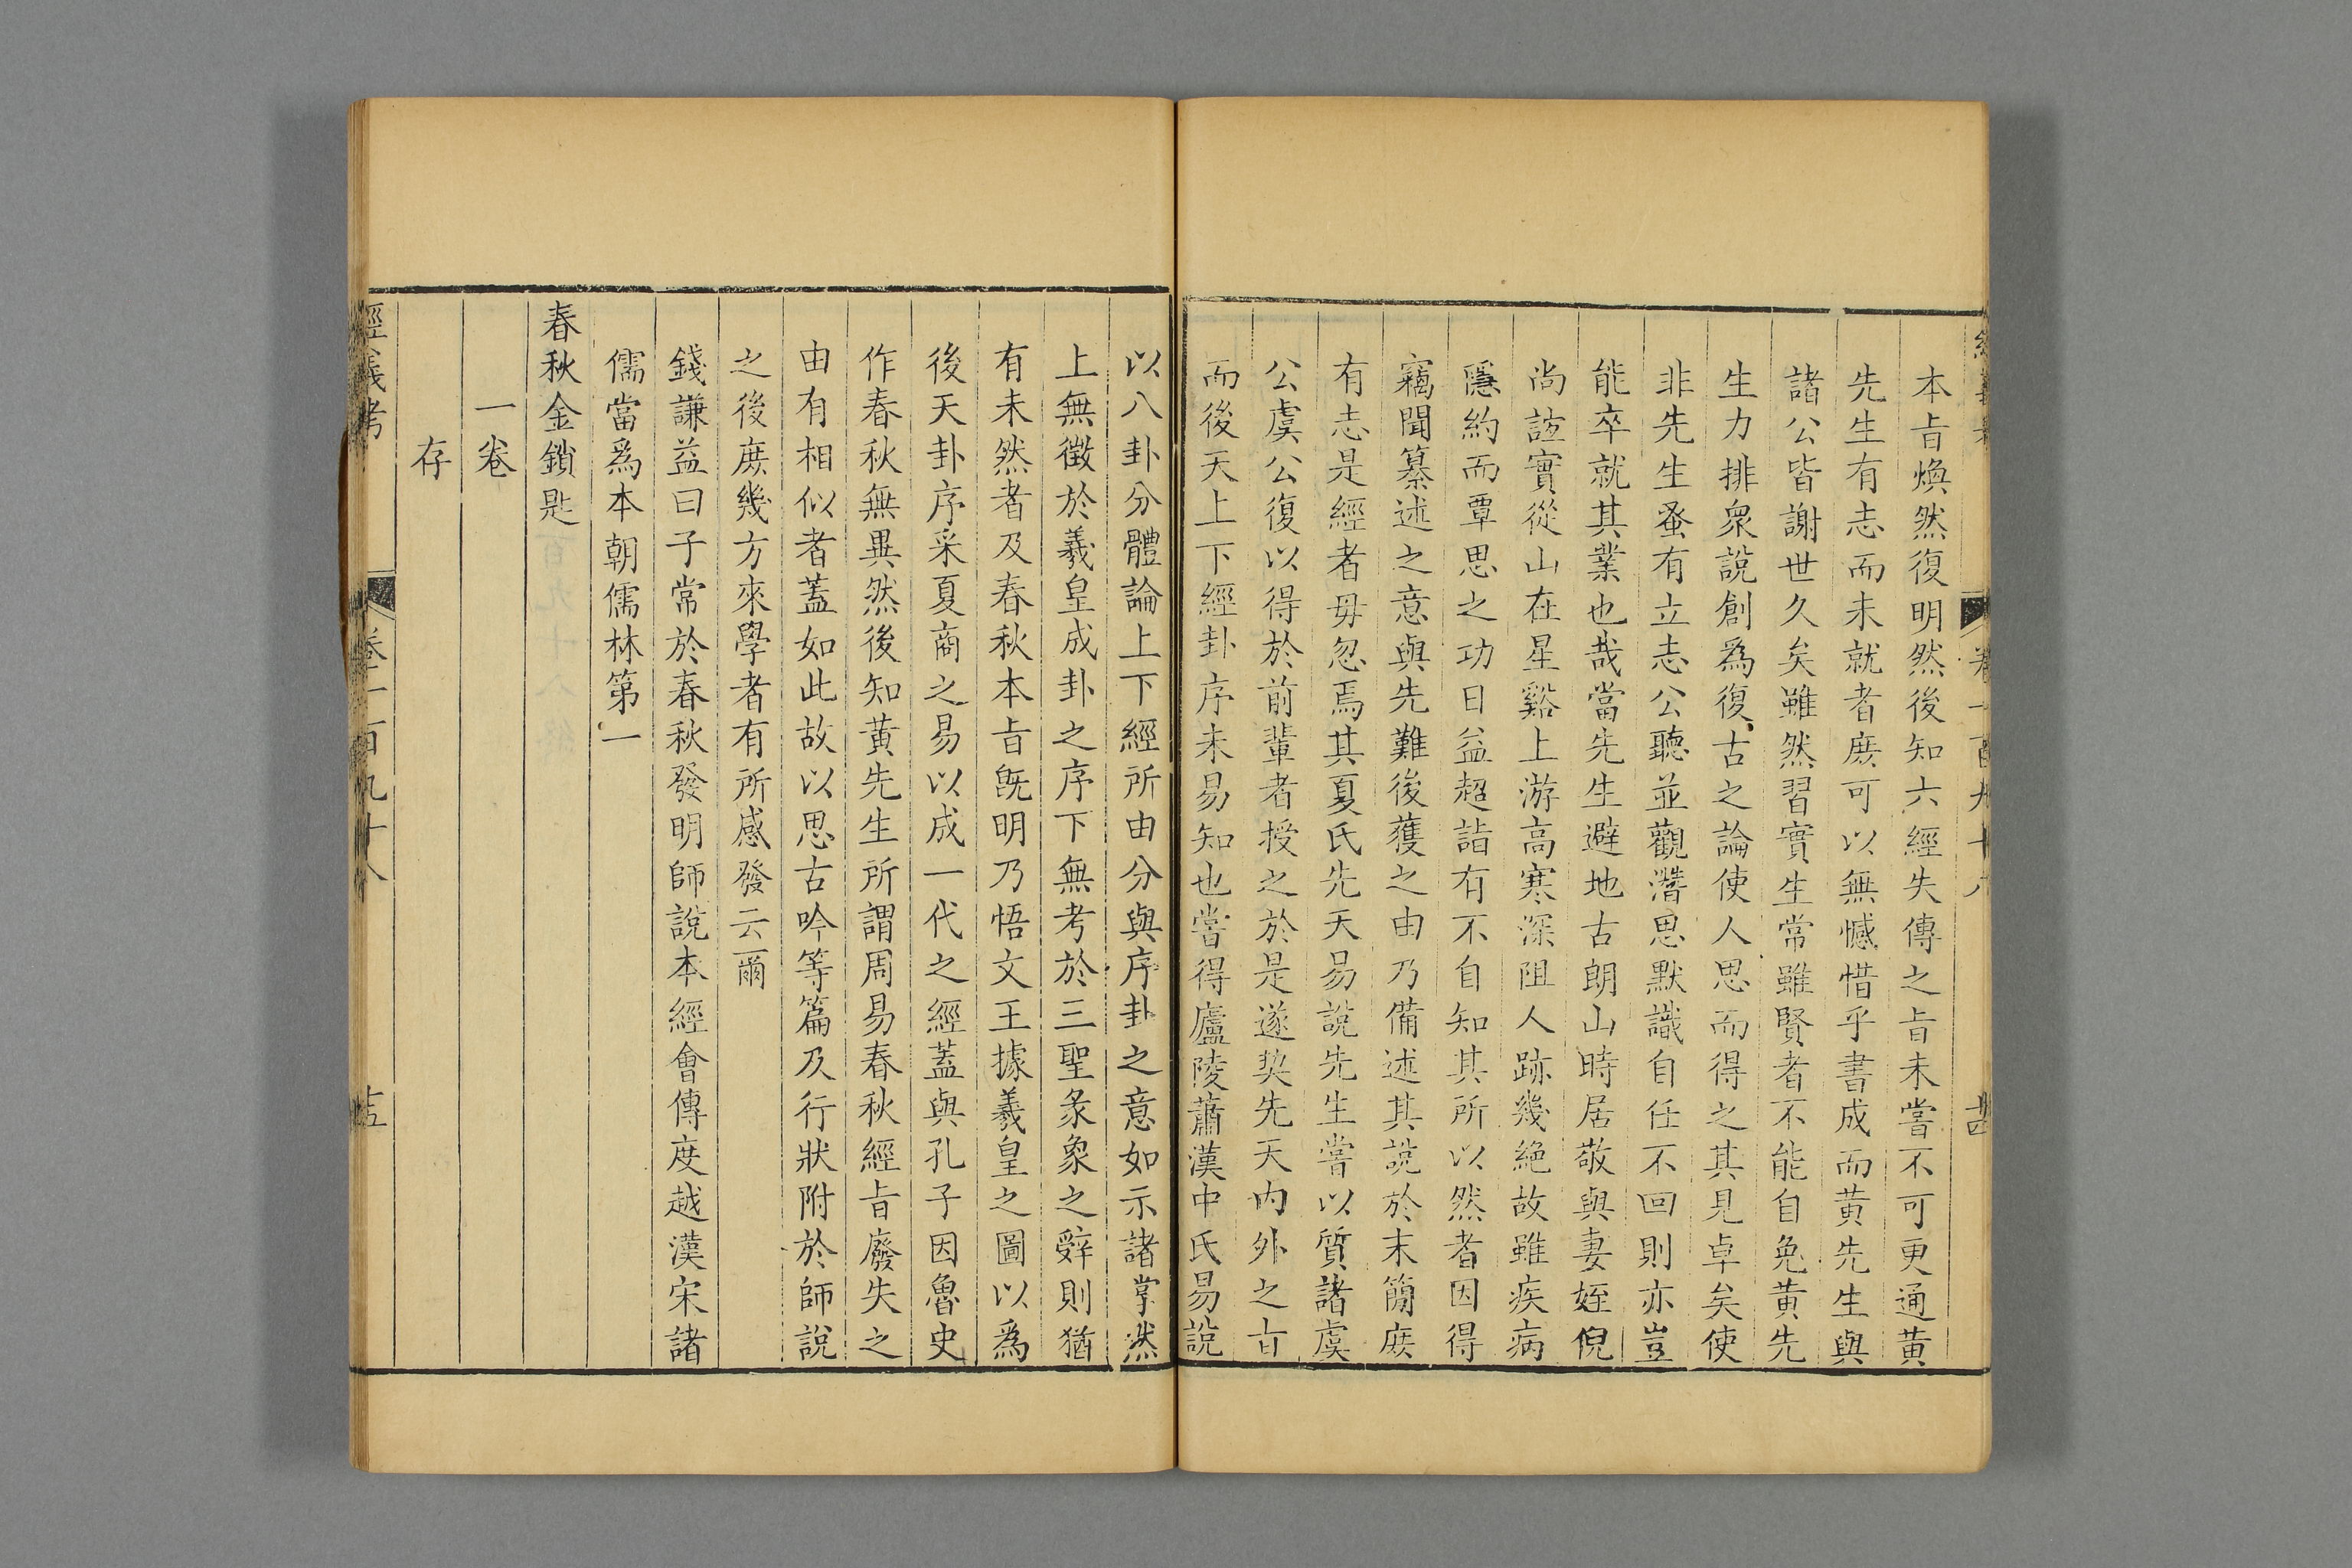 本旨煥然復明然後知六經失傳之旨未嘗不可更通黃
先生有志而未就者庻可以無憾惜乎書成而黃先生與
諸公皆謝世久矣雖然習實生常雖賢者不能自免黃先
生力排衆說創爲復古之論使人思而得之其見卓矣使
非先生蚤有立志公聽並觀濳思默識自任不回則亦豈
能卒就其業也哉當先生避地古朗山時居敬與妻姪倪
尚誼實從山在星谿上游高寒深阻人跡幾絕故雖疾病
隱約而覃思之功日益超詣有不自知其所以然者因得
竊聞纂述之意與先難後獲之由乃備述其說於末簡庻
有志是經者毋忽焉其夏氏先天易說先生嘗以質諸虞
公虞公復以得於前輩者授之於是遂契先天內外之旨
而後天上下經卦序未易知也嘗得廬陵蕭漢中氏易說
以八卦分體論上下經所由分與序卦之意如示諸掌然
上無徵於羲皇成卦之序下無考於三聖彖象之辭則猶
有未然者及春秋本旨旣明乃悟文王據羲皇之圖以爲
後天卦序采夏商之易以成一代之經蓋與孔子因魯史
作春秋無異然後知黃先生所謂周易春秋經旨廢失之
由有相似者蓋如此故以思古吟等篇及行狀附於師說
之後庻幾方來學者有所感發云爾
錢謙益曰子常於春秋發明師說本經會傳度越漢宋諸
儒當爲本朝儒林第一
春秋金鎖匙
一卷
存
經義考
卷一百九十八